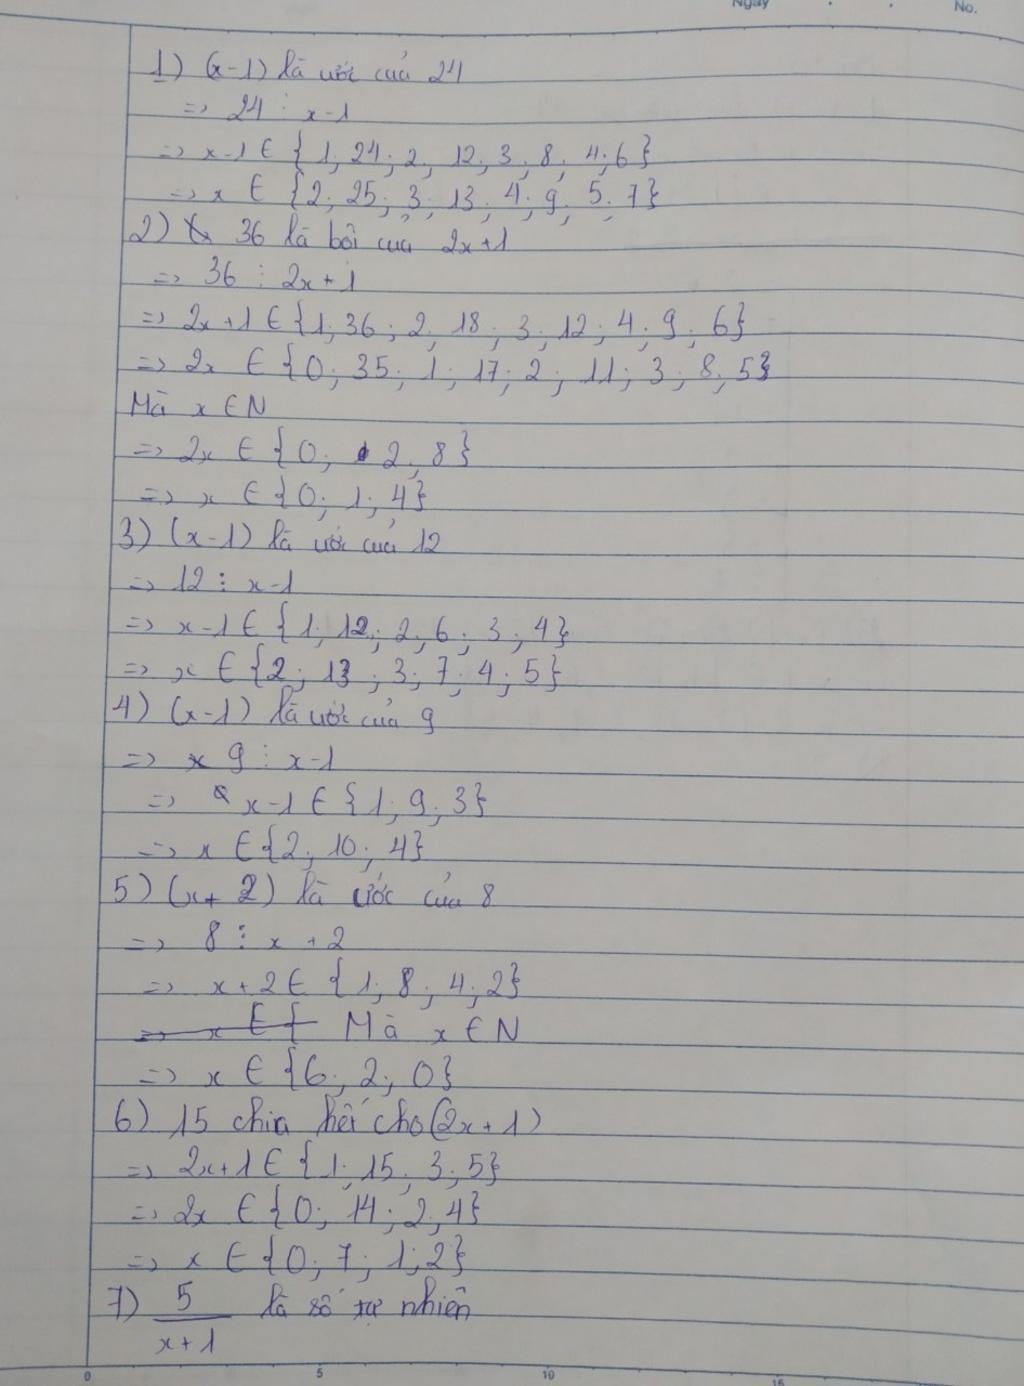 Ngày . . No.
1) (x-1) là ước của 24
=> 24 ⋮ x-1
=> x-1 ∈ {1; 24; 2; 12; 3; 8; 4; 6}
=> x ∈ {2; 25; 3; 13; 4; 9; 5; 7}
2) 36 là bội của 2x+1
=> 36 ⋮ 2x+1
=> 2x+1 ∈ {1; 36; 2; 18; 3; 12; 4; 9; 6}
=> 2x ∈ {0; 35; 1; 17; 2; 11; 3; 8; 5}
Mà x ∈ N
=> 2x ∈ {0; 2; 8}
=> x ∈ {0; 1; 4}
3) (x-1) là ước của 12
=> 12 ⋮ x-1
=> x-1 ∈ {1; 12; 2; 6; 3; 4}
=> x ∈ {2; 13; 3; 7; 4; 5}
4) (x-1) là ước của 9
=> 9 ⋮ x-1
=> x-1 ∈ {1; 9; 3}
=> x ∈ {2; 10; 4}
5) (x+2) là ước của 8
=> 8 ⋮ x+2
=> x+2 ∈ {1; 8; 4; 2}
Mà x ∈ N
=> x ∈ {6; 2; 0}
6) 15 chia hết cho (2x+1)
=> 2x+1 ∈ {1; 15; 3; 5}
=> 2x ∈ {0; 14; 2; 4}
=> x ∈ {0; 7; 1; 2}
7) 5/x+1 là số tự nhiên
0 5 10 15